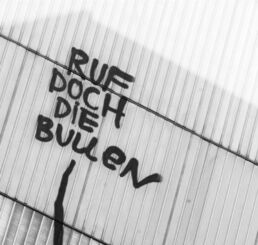 RUF
DOCH
DIE
BULLEN